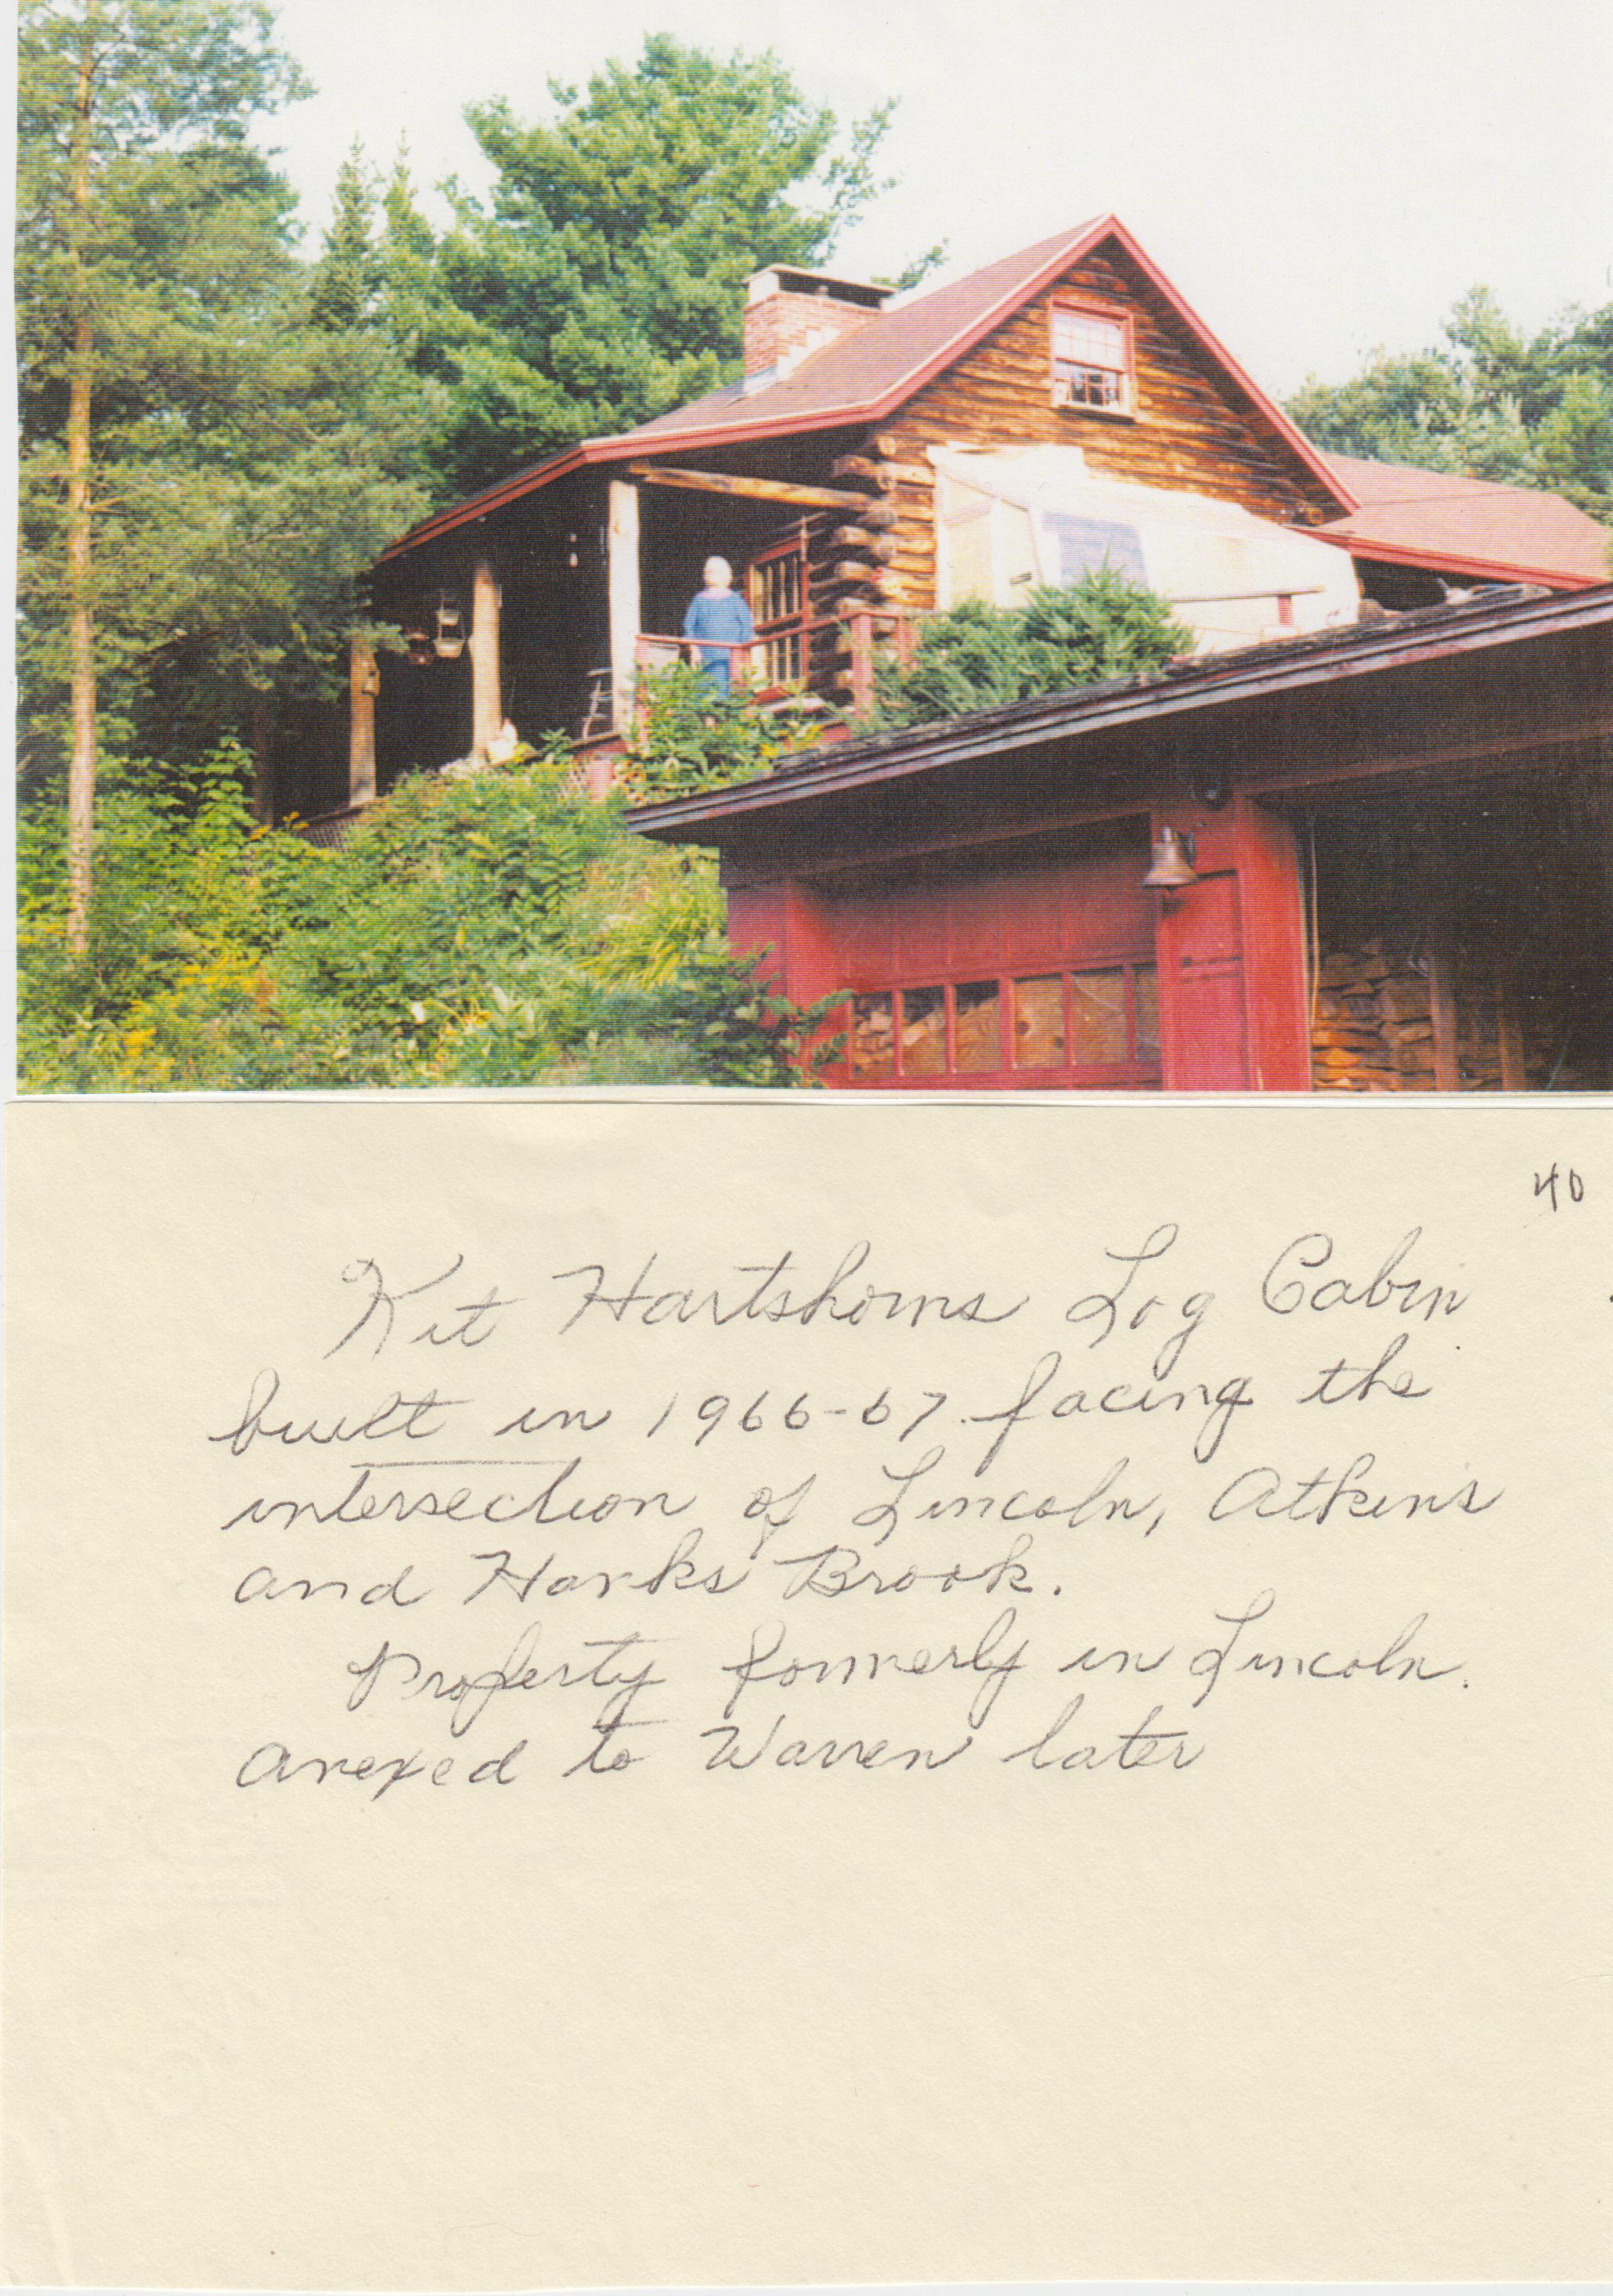 40
Kit Hartshorns Log Cabin
built in 1966-67 facing the
intersection of Lincoln, Atkins
and Hanks Brook.
Property formerly in Lincoln.
Anexed to Warren later